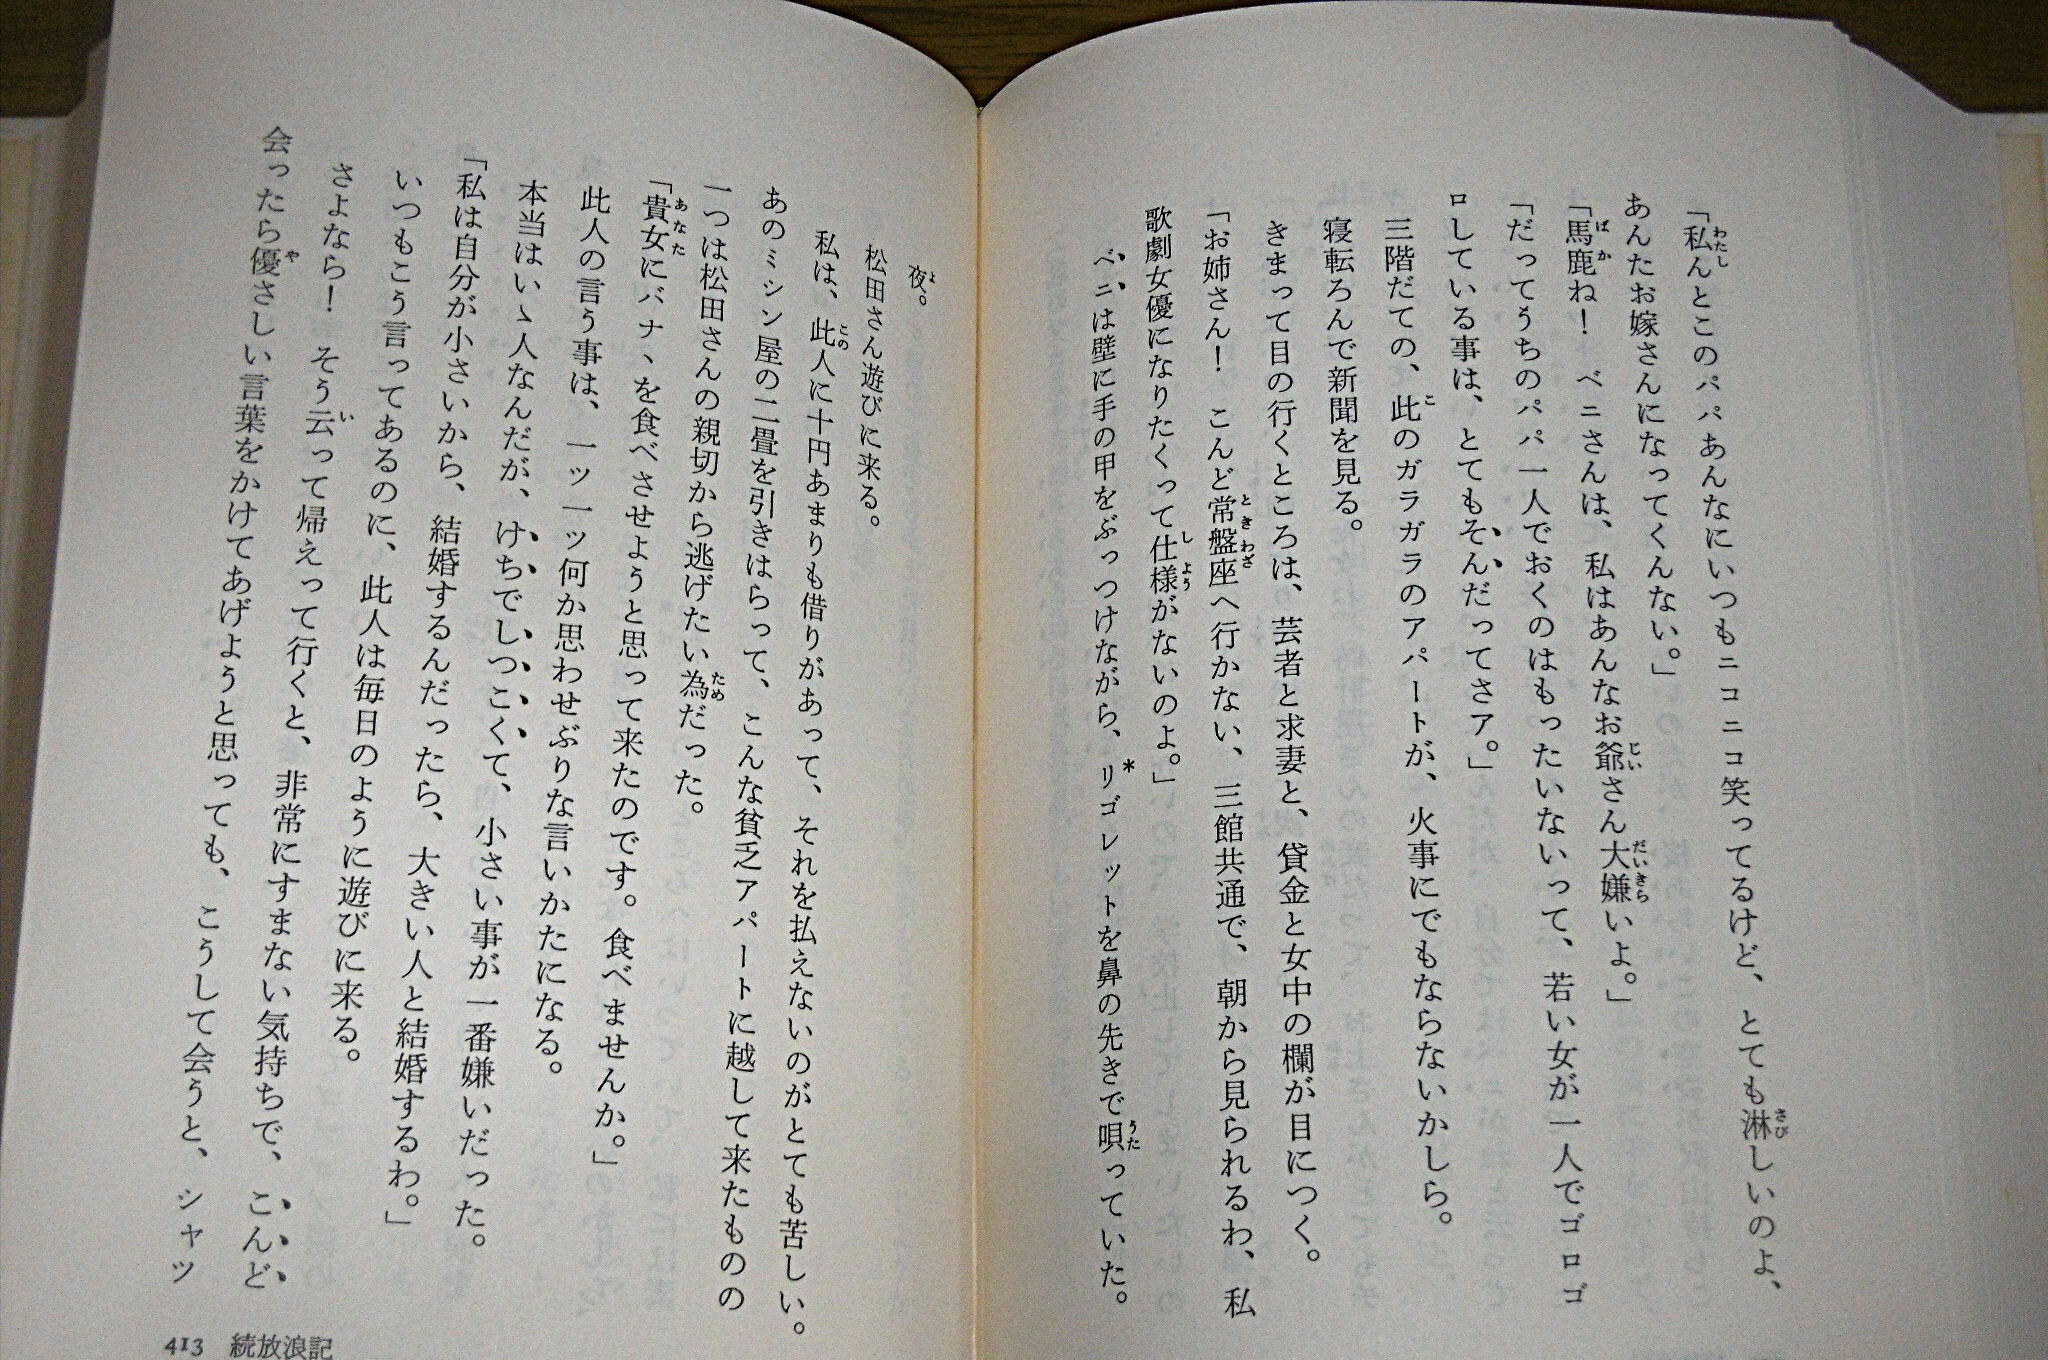 「私んとこのパパあんなにいつもニコニコ笑ってるけど、とても淋しいのよ、
あんたお嫁さんになってくんない。」
「馬鹿ね！　ベニさんは、私はあんなお爺さん大嫌いよ。」
「だってうちのパパ一人でおくのはもったいないって、若い女が一人でゴロゴ
ロしている事は、とてもそんだってさア。」
三階だての、此のガラガラのアパートが、火事にでもならないかしら。
寝転ろんで新聞を見る。
きまって目の行くところは、芸者と求妻と、貸金と女中の欄が目につく。
「お姉さん！　こんど常盤座へ行かない、三館共通で、朝から見られるわ、私
歌劇女優になりたくって仕様がないのよ。」
ベニは壁に手の甲をぶっつけながら、リゴレットを鼻の先きで唄っていた。
夜。
松田さん遊びに来る。
私は、此人に十円あまりも借りがあって、それを払えないのがとても苦しい。
あのミシン屋の二畳を引きはらって、こんな貧乏アパートに越して来たものの
一つは松田さんの親切から逃げたい為だった。
「貴女にバナヽを食べさせようと思って来たのです。食べませんか。」
此人の言う事は、一ッ一ッ何か思わせぶりな言いかたになる。
本当はいゝ人なんだが、けちでしつこくて、小さい事が一番嫌いだった。
「私は自分が小さいから、結婚するんだったら、大きい人と結婚するわ。」
いつもこう言ってあるのに、此人は毎日のように遊びに来る。
さよなら！　そう云って帰えって行くと、非常にすまない気持ちで、こんど
会ったら優さしい言葉をかけてあげようと思っても、こうして会うと、シャツ
413　続放浪記